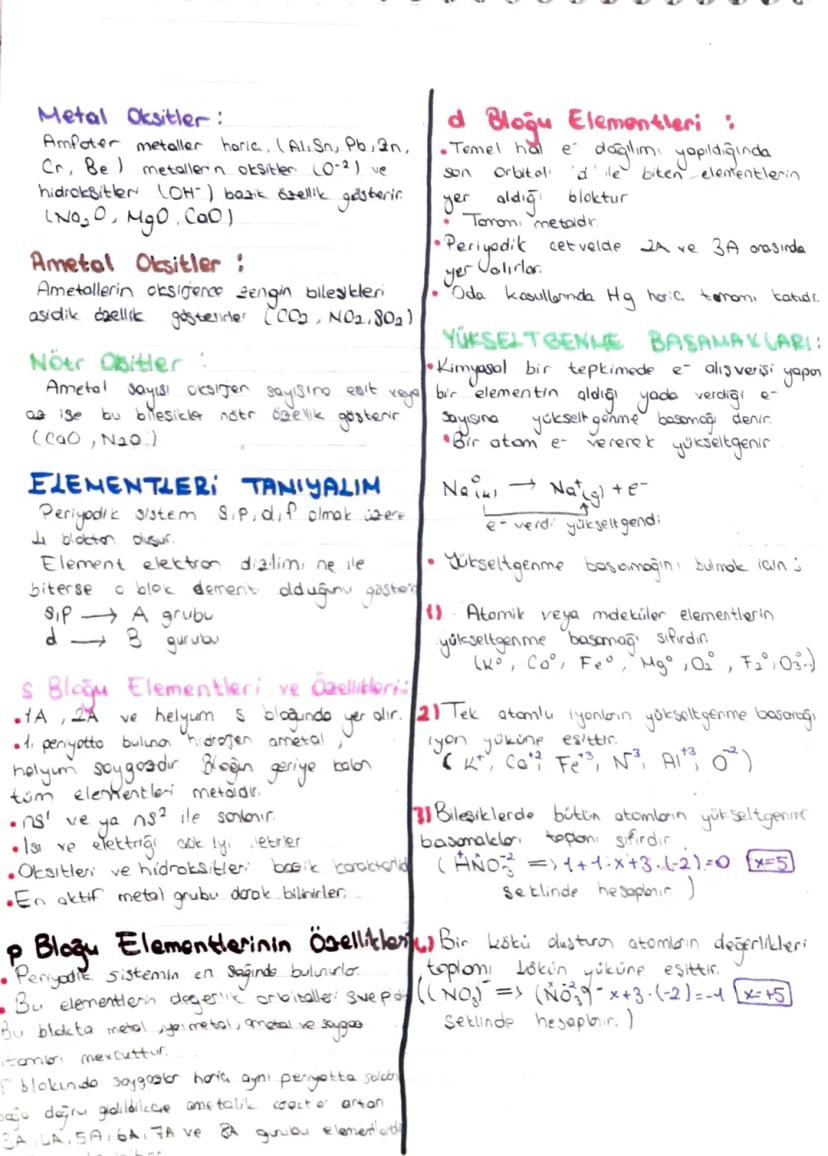 Metal Oksitler :
Amfoter metaller hariç. (Al,Sn, Pb, Zn,
Cr, Be) metallerin oksitler (O-2) ve
hidroksitleri (OH-) bazik özellik gösterir.
(Na2O, MgO, CaO)
Ametal Oksitler :
Ametallerin oksijence zengin bileşikleri
asidik özellik gösterirler (CO2, NO2, SO2)
Nötr Oksitler :
Ametal sayısı oksijen sayısına eşit veya
az ise bu bileşikler nötr özellik gösterir
(CaO, N2O.)
ELEMENTLERİ TANIYALIM
Periyodik sistem s,p,d,f olmak üzere
4 bloktan oluşur.
Element elektron dizilimi ne ile
biterse o blok element olduğunu gösterir
s,p → A grubu
d → B gurubu
s Bloğu Elementleri ve Özellikleri:
• 1A, 2A ve helyum s bloğunda yer alır.
• 1. periyotta bulunan hidrojen ametal,
helyum soygazdır. Bloğun geriye kalan
tüm elementleri metaldir.
• ns¹ ve ya ns² ile sonlanır.
• Isı ve elektriği çok iyi iletirler
• Oksitleri ve hidroksitleri bazik karakterlidir
• En aktif metal grubu olarak bilinirler.
p Bloğu Elementlerinin Özellikleri
• Periyodik sistemin en sağında bulunurlar.
• Bu elementlerin değerlik orbitalleri s ve p dir
Bu blokta metal, yarı metal, ametal ve soygaz
atomları mevcuttur.
P blokında soygazlar hariç aynı periyotta soldan
sağa doğru gidildikçe ametalik artan
3A, 4A, 5A, 6A, 7A ve 8A gurubu
d Bloğu Elementleri :
• Temel hal e- dağılımı yapıldığında
son orbitali 'd' ile biten elementlerin
yer aldığı bloktur
• Tamamı metaldir.
• Periyodik cetvelde 2A ve 3A arasında
yer alırlar.
• Oda kasullarında Hg hariç tamamı katıdır.
YÜKSELTGENME BASAMAKLARI:
• Kimyasal bir tepkimede e- alışverişi yapan
bir elementin aldığı yada verdiği e-
sayısına yükseltgenme basamağı denir.
• Bir atom e- vererek yükseltgenir
Na⁰(k) → Na⁺(g) + e-
e- verdi yükseltgendi
• Yükseltgenme basamağını bulmak için ;
1) Atomik veya moleküler elementlerin
yükseltgenme basamağı sıfırdır.
(K⁰, Ca⁰, Fe⁰, Mg⁰, O2⁰, F2⁰, O3⁰.)
2) Tek atomlu iyonların yükseltgenme basamağı
iyon yüküne eşittir.
(K⁺, Ca⁺², Fe⁺³, N⁻³, Al⁺³, O⁻²)
3) Bileşiklerde bütün atomların yükseltgenme
basamakları toplamı sıfırdır.
(HNO3 => 1+1.x+3.(-2)=0 x=5
şeklinde hesaplanır)
4) Bir kökü oluşturan atomların değerlikleri
toplamı kökün yüküne eşittir.
((NO3)⁻ => (NO3)⁻ x+3.(-2)=-1 x=+5
şeklinde hesaplanır.)